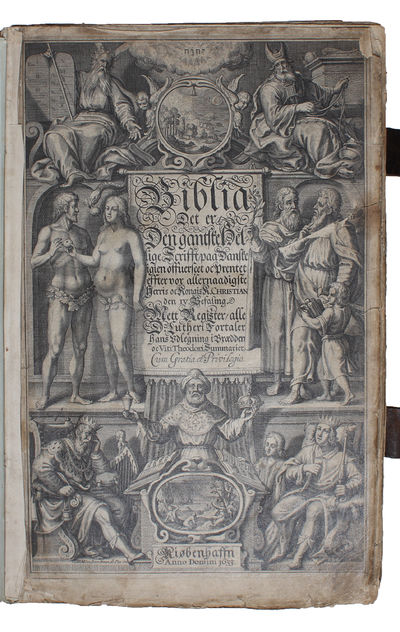 יהוה
Biblia
Det er
Den gantske Hel-
lige Scrifft, paa Danske
igien offuerseet oc prentet
effter vor allernaadigste
Herris oc Konnigs K. CHRISTIAN
den IV Befaling.
Mett Register, alle
D. Lutheri Fortaler
hans Vdlegning i Bradden
oc Viti Theodori Summarier.
Cum Gratia et Privilegio.
Kiøbenhaffn
Anno Domini 1633.